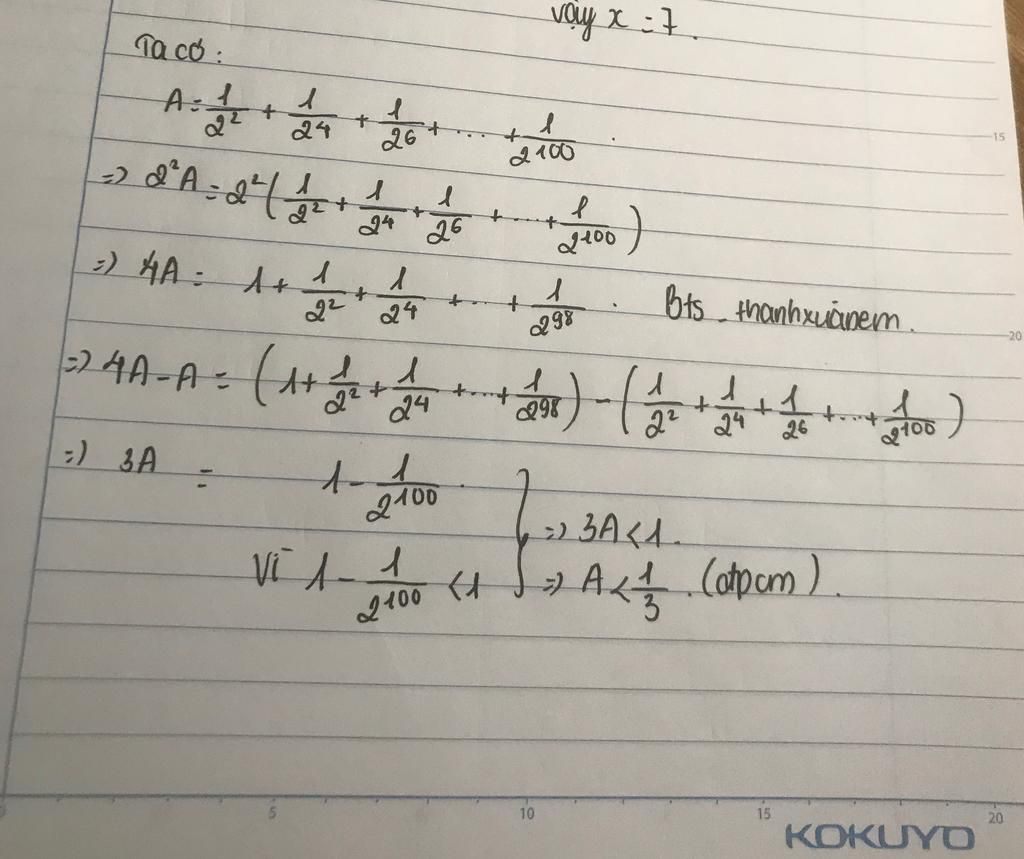 Vậy x = 7.
Ta có:
A = 1/2² + 1/2⁴ + 1/2⁶ + ... + 1/2¹⁰⁰.
=> 2²A = 2²(1/2² + 1/2⁴ + 1/2⁶ + ... + 1/2¹⁰⁰)
=> 4A = 1 + 1/2² + 1/2⁴ + ... + 1/2⁹⁸. Bts_thanhxuânem.
=> 4A - A = (1 + 1/2² + 1/2⁴ + ... + 1/2⁹⁸) - (1/2² + 1/2⁴ + 1/2⁶ + ... + 1/2¹⁰⁰)
=> 3A = 1 - 1/2¹⁰⁰.
=> 3A < 1.
Vì 1 - 1/2¹⁰⁰ < 1 } => A < 1/3. (đpcm).
15
20
5 10 15 20
KOKUYO